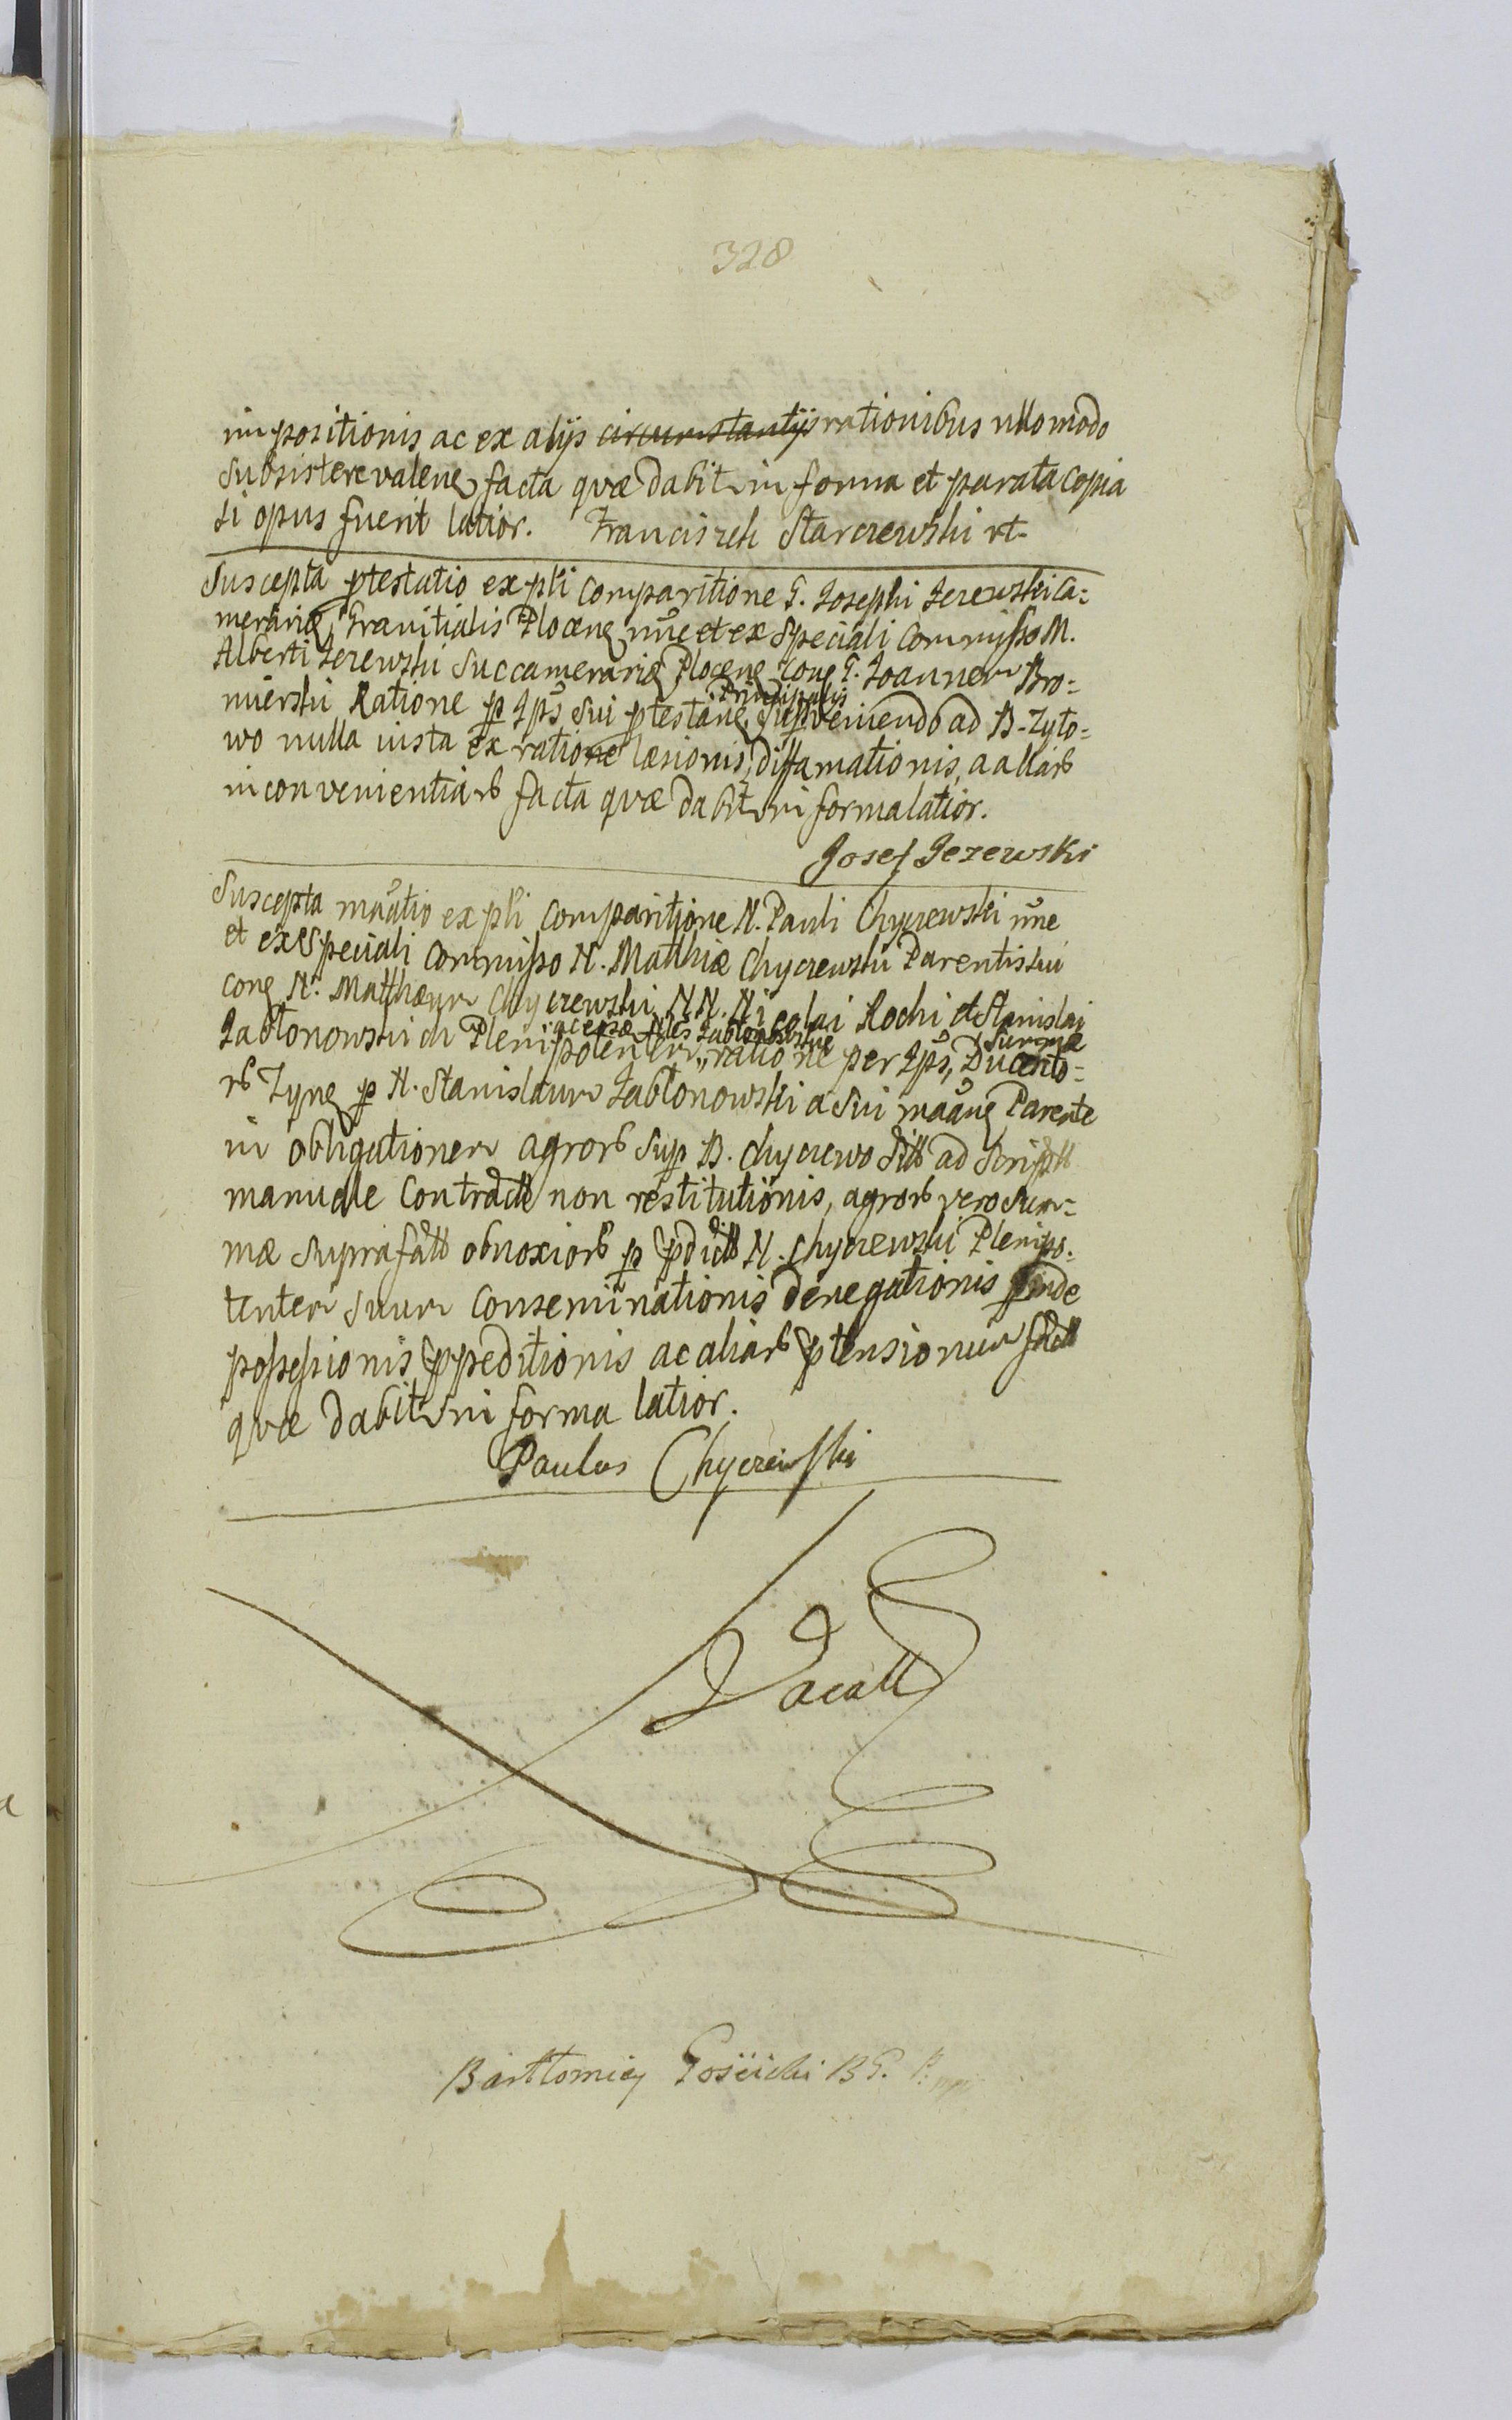 328
impositionis ac ex alijs circumstantijs rationibus ullo modo
subsistere valenꝭ facta quæ dabitr in forma et parata copia
si opus fuerit latior. Franciszek Starczewski
Suscepta ptestatio ex pli comparitione G. Josephi Jezewski Ca=
merarij Granitialis Plocenꝭ nñe et ex speciali commisso M.
Alberti Jezewski Succamerarij Plocenꝭ conꝭ G. Joannem Bro=
mierski Ratione p Ips̃ sui ptestanꝭ Principalis supveniendo ad B. Zyto=
wo nulla iusta ex ratione læsionis, diffamationis, a aliarb
inconvenientiarb facta quæ dabitr in forma latior.
Josef Jezewski
Suscepta mãtio ex pli comparitione N. Pauli Chyczewski nñe
et ex speciali Commisso N. Matthiæ Chyczewski Parentis sui
conꝭ N. Matthæum Chyczewski NN. Nicolai Rochi et Stanislai
Jabłonowskich Plenipotentem ratione per Ips̃ Summæ Ducento=
rb Zynꝭ p N. Stanislaum Jabłonowski a sui mãnꝭ Parente
in obligationem agrorb sup B. Chyczewo ad
manuale non restitutionis, agrorb vero sum=
mæ suprafatt obnoxiorb p pdict N. Chyczewski Plenipo=
tentem suum Conseminationis denegationis pinde
possessionis ppeditionis ac aliarb ptensionum fact
quæ dabitr in forma latior.
Paulus Chyczewski
Vacatt
Bartłomiey Gościcki BG.